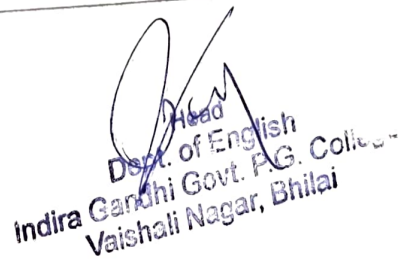 Head
Dept. of English
Indira Gandhi Govt. P.G.
Vaishali Nagar, Bhilai